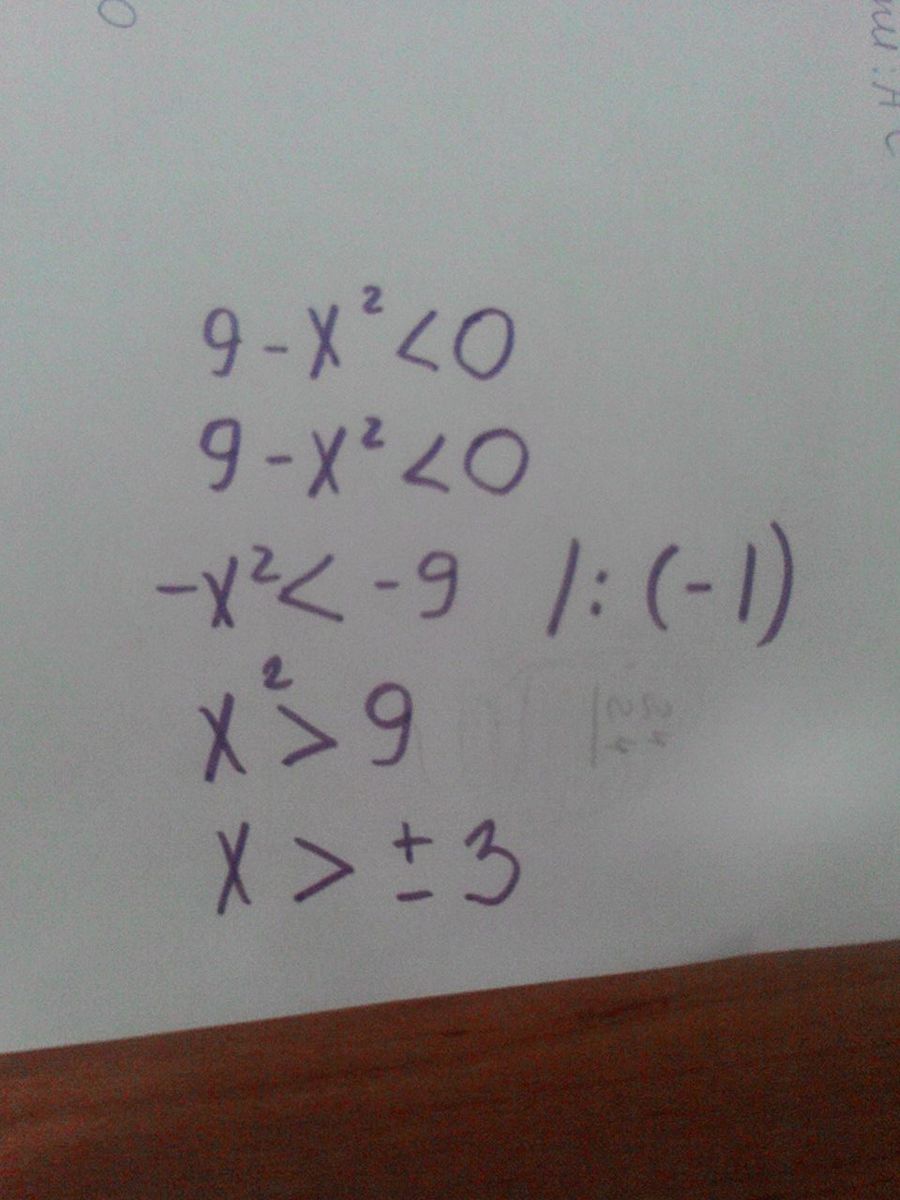 9 - x² < 0
9 - x² < 0
-x² < -9 /: (-1)
x² > 9
x > ± 3